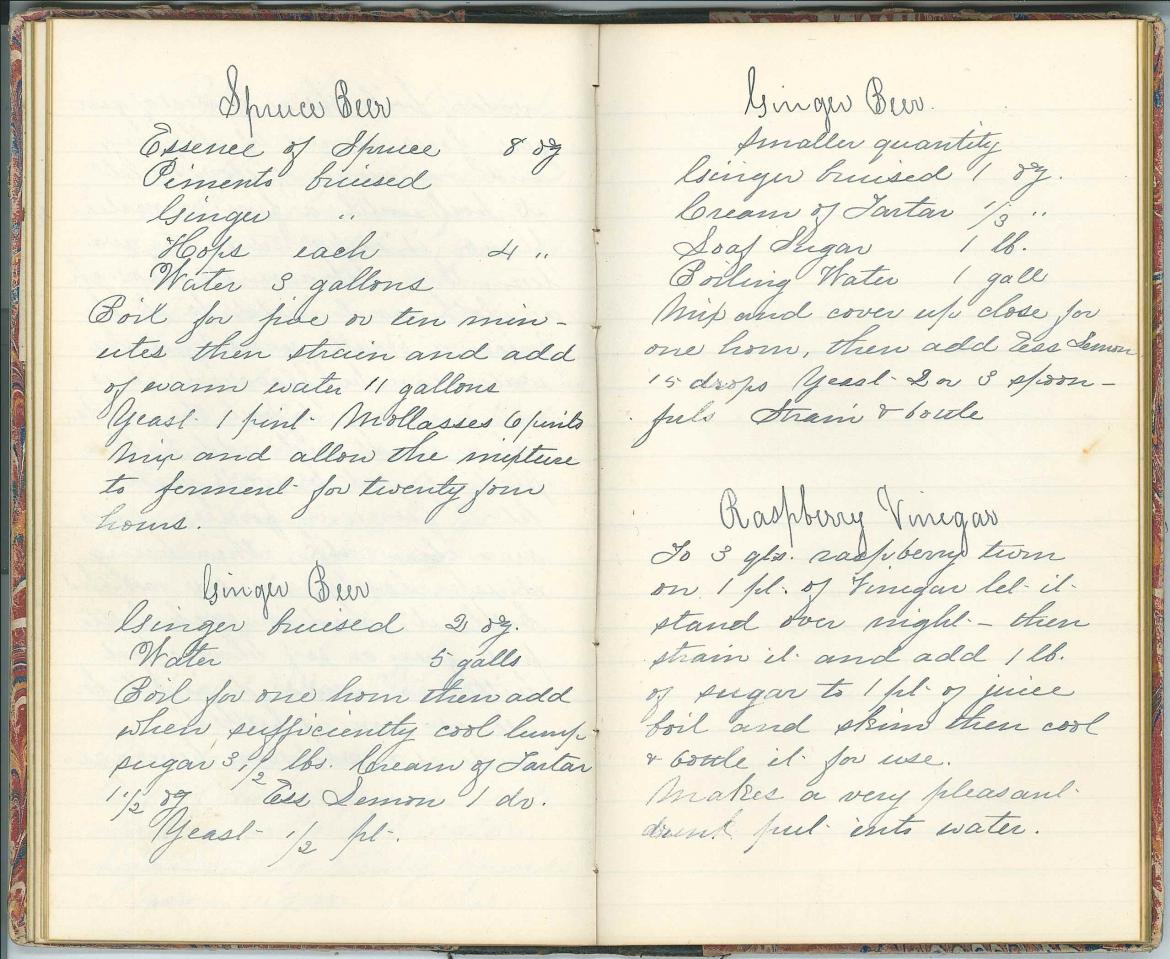 Spruce Beer
Essence of Spruce 8 oz
Pimento bruised
Ginger "
Hops each 4 "
Water 3 gallons
Boil for five or ten min-
utes then strain and add
of warm water 11 gallons
Yeast 1 pint Mollasses 6 pints
Mix and allow the mixture
to ferment for twenty four
hours.
Ginger Beer
Ginger bruised 2 oz.
Water 5 galls
Boil for one hour then add
when sufficiently cool lump
sugar 3 1/2 lbs. Cream of Tartar
1 1/2 oz Ess Lemon 1 dr.
Yeast 1/2 pt.
Ginger Beer.
Smaller quantity
Ginger bruised 1 oz.
Cream of Tartar 1/3 "
Loaf Sugar 1 lb.
Boiling Water 1 gall
Mix and cover up close for
one hour, then add Ess Lemon
15 drops Yeast 2 or 3 spoon-
fuls Strain & bottle
Raspberry Vinegar
To 3 qts. raspberry turn
on 1 pt. of Vinegar let it
stand over night - then
strain it and add 1 lb.
of sugar to 1 pt of juice
boil and skim then cool
& bottle it for use.
Makes a very pleasant
drink put into water.